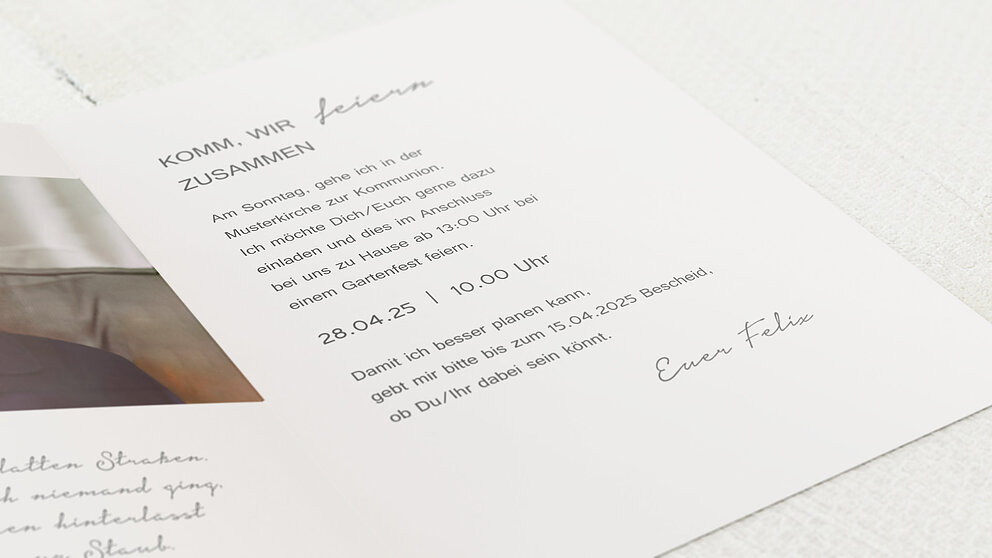 KOMM, WIR feiern
ZUSAMMEN
Am Sonntag, gehe ich in der
Musterkirche zur Kommunion.
Ich möchte Dich/Euch gerne dazu
einladen und dies im Anschluss
bei uns zu Hause ab 13:00 Uhr bei
einem Gartenfest feiern.
28.04.25 | 10.00 Uhr
Damit ich besser planen kann,
gebt mir bitte bis zum 15.04.2025 Bescheid,
ob Du/Ihr dabei sein könnt.
Euer Felix
latten Straßen.
ch niemand ging.
en hinterlässt
Staub.